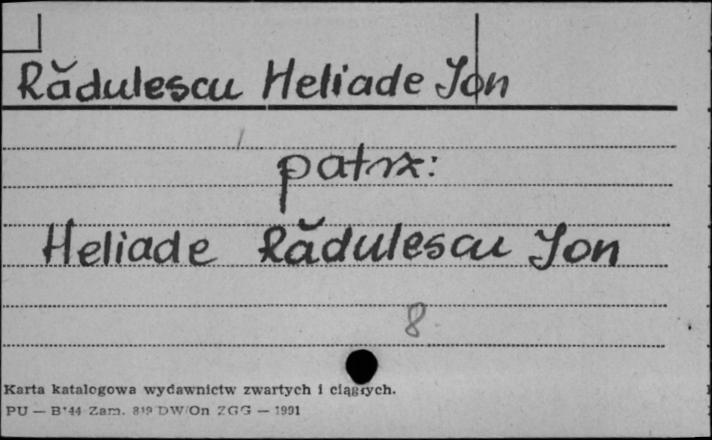 Rădulescu Heliade Jon
patrz:
Heliade Rădulescu Jon
8
Karta katalogowa wydawnictw zwartych i ciągłych.
PU — B*44 Zam. 819 DW/On ZGG — 1991